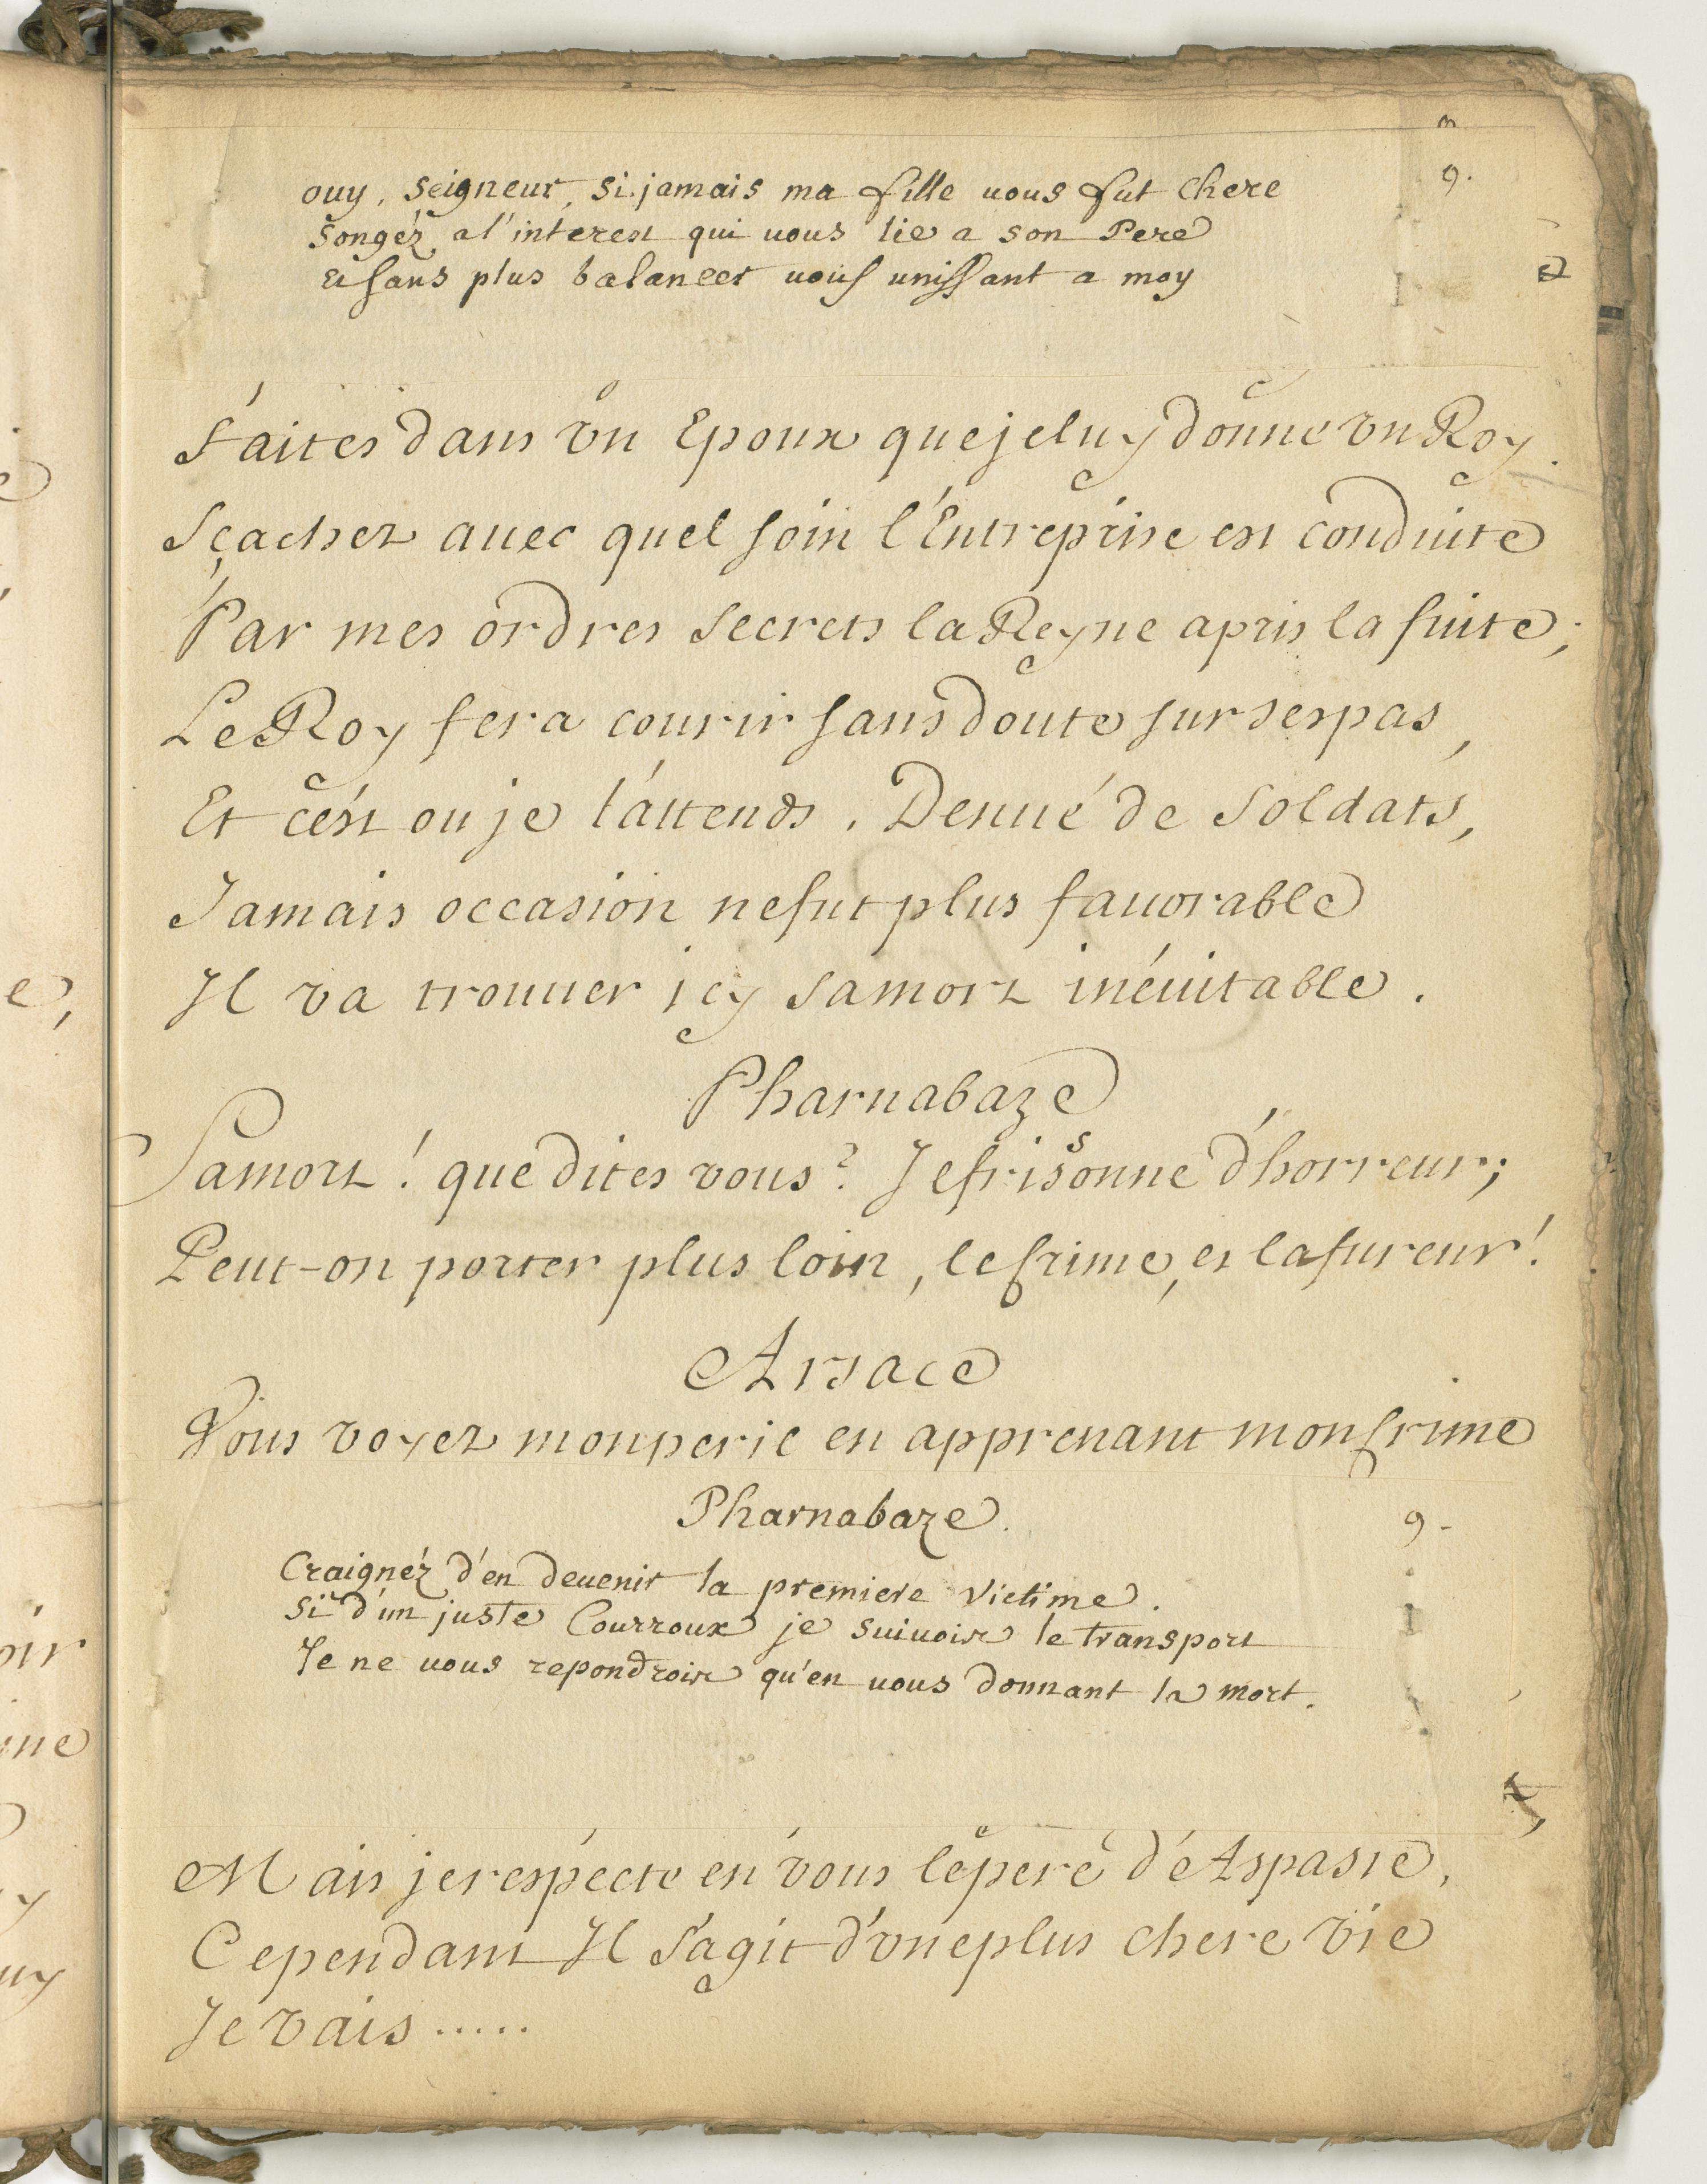 9.
ouy, Seigneur, Si jamais ma fille uous fut Chere
Songéz a l'interest qui uous lie a son Pere
Et sans plus balancer uous unissant a moy
Faites dans vn Epoux que je luy donne vn Roy.
Sçachez auec quel soin l'Entreprise est conduite
Par mes ordres secrets la Reyne a pris la fuite;
Le Roy fera courir sans doute sur ses pas,
Et c'est ou je l'attends. Denué de Soldats,
Jamais occasion ne fut plus fauorable
Il va trouuer icy sa mort inéuitable.
Pharnabaze
Sa mort! que dites vous? Je frissonne d'horreur;
Peut-on porter plus loin, le crime, et la fureur!
Arsace
Vous voyez mon peril en apprenant mon crime
Pharnabaze.
9.
Craignéz d'en deuenir la premiere Victime.
Si d'un juste Courroux je suiuois le transport
Je ne uous repondrois qu'en uous donnant la mort.
Mais je respecte en vous le pere d'Aspasie,
Cependant Il s'agit d'vne plus chere vie
Je vais .....